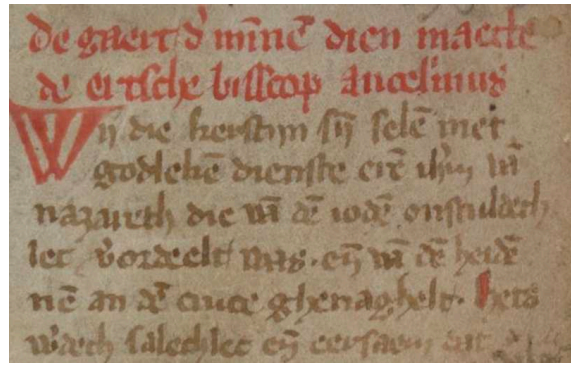 de gaert d' mīnē dien maecte
de ertsche bisscop ancelmus
Wij die kerstyn sȳ selē met
godlekē dienste erē ihm vā
nazareth die vā dē iodē onsculdech
lec v'ordeelt was. eñ vā dē heidē
nē an dē cruce ghenaghelt. hets
w'dech salechlec eñ eersaem dat